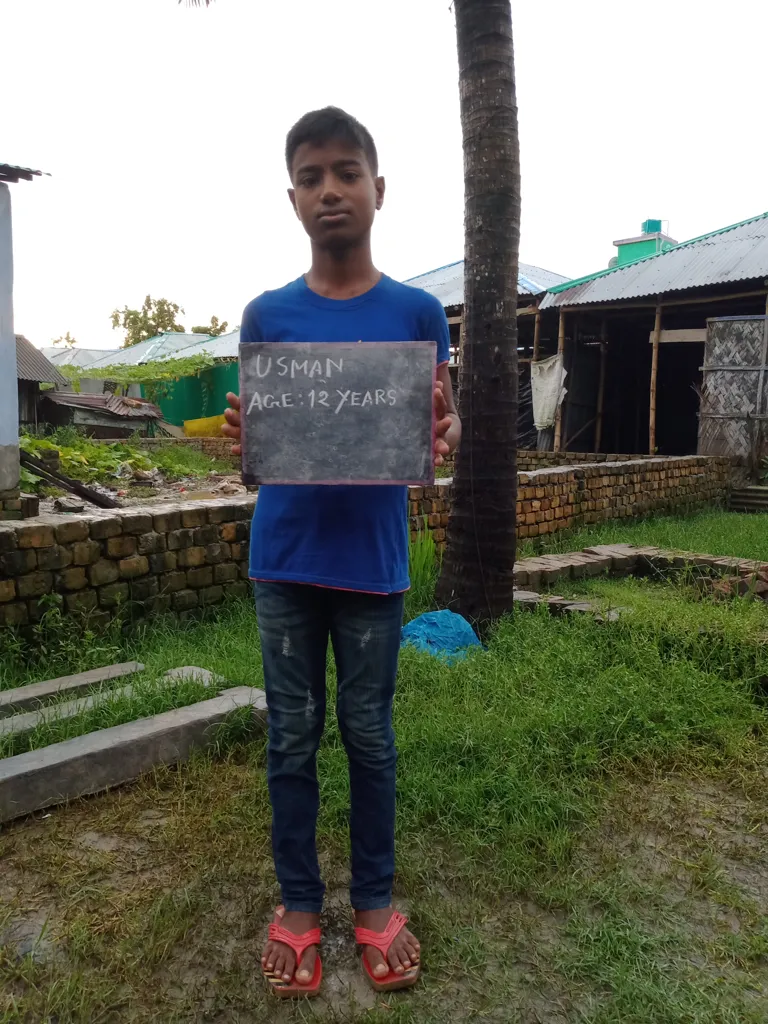 USMAN
AGE: 12 YEARS